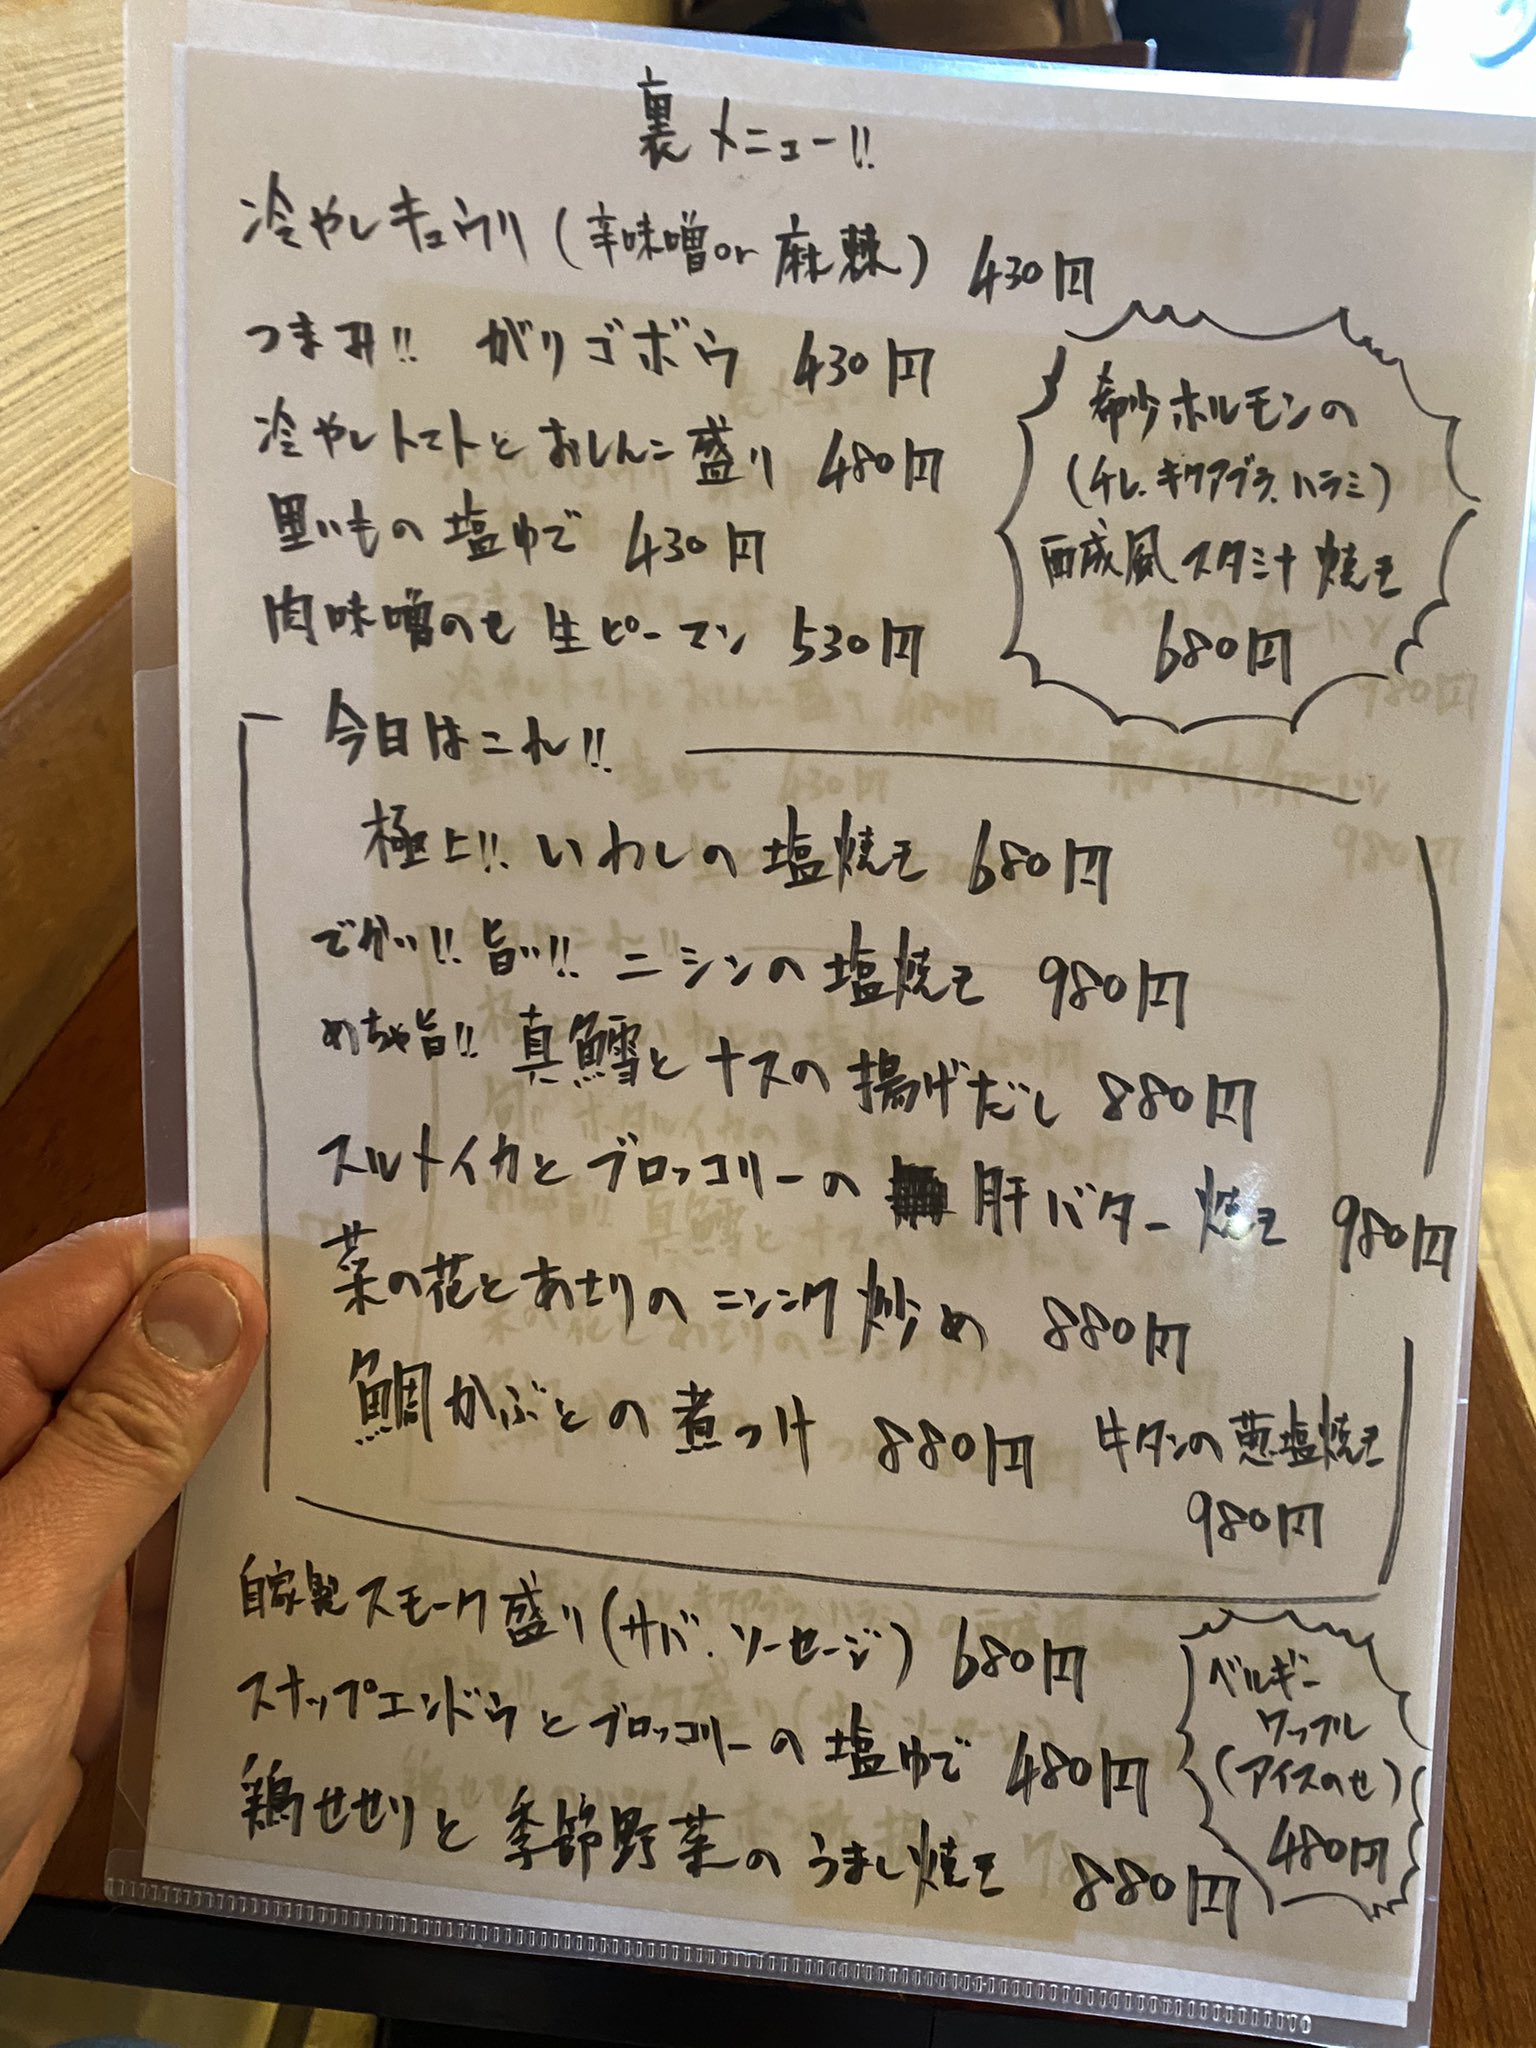 裏メニュー!!
冷やしキュウリ(辛味噌or麻辣) 430円
つまみ!! がりゴボウ 430円
冷やしトマトとおしんこ盛り 480円
里いもの塩ゆで 430円
肉味噌のせ生ピーマン 530円
希少ホルモンの
(チレ、キクアブラ、ハラミ)
西成風スタミナ焼き
680円
今日はこれ!!
極上!! いわしの塩焼き 680円
でかい!! 旨い!! ニシンの塩焼き 980円
めちゃ旨!! 真鱈とナスの揚げだし 880円
スルメイカとブロッコリーの肝バター焼き 980円
菜の花とあさりのニンニク炒め 880円
鯛かぶとの煮つけ 880円
牛タンの葱塩焼き
980円
自家製スモーク盛り(サバ、ソーセージ) 680円
スナップエンドウとブロッコリーの塩ゆで 480円
鶏せせりと季節野菜のうまし焼き 880円
ベルギー
ワッフル
(アイスのせ)
480円